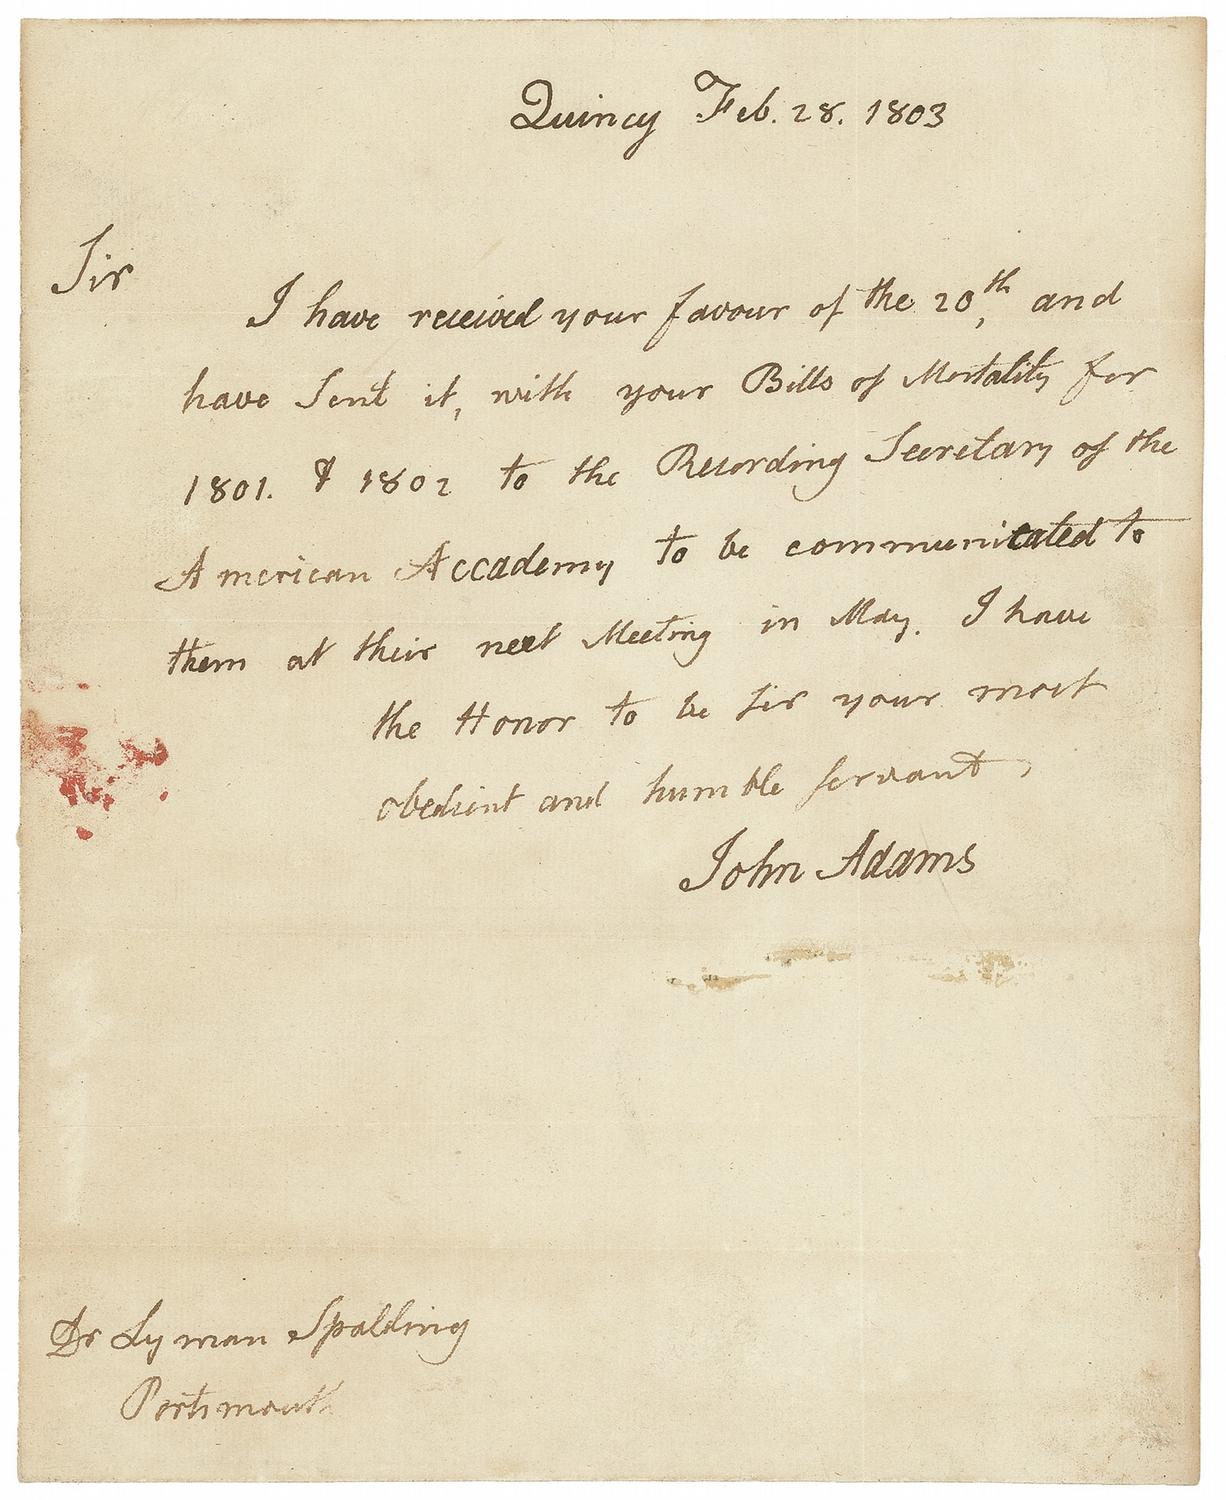 Quincy Feb. 28. 1803
Sir
I have received your favour of the 20th, and
have Sent it, with your Bills of Mortality for
1801. & 1802 to the Recording Secretary of the
American Accademy to be communicated to
them at their next Meeting in May. I have
the Honor to be Sir your most
obedient and humble servant,
John Adams
Dr Lyman Spalding
Portsmouth